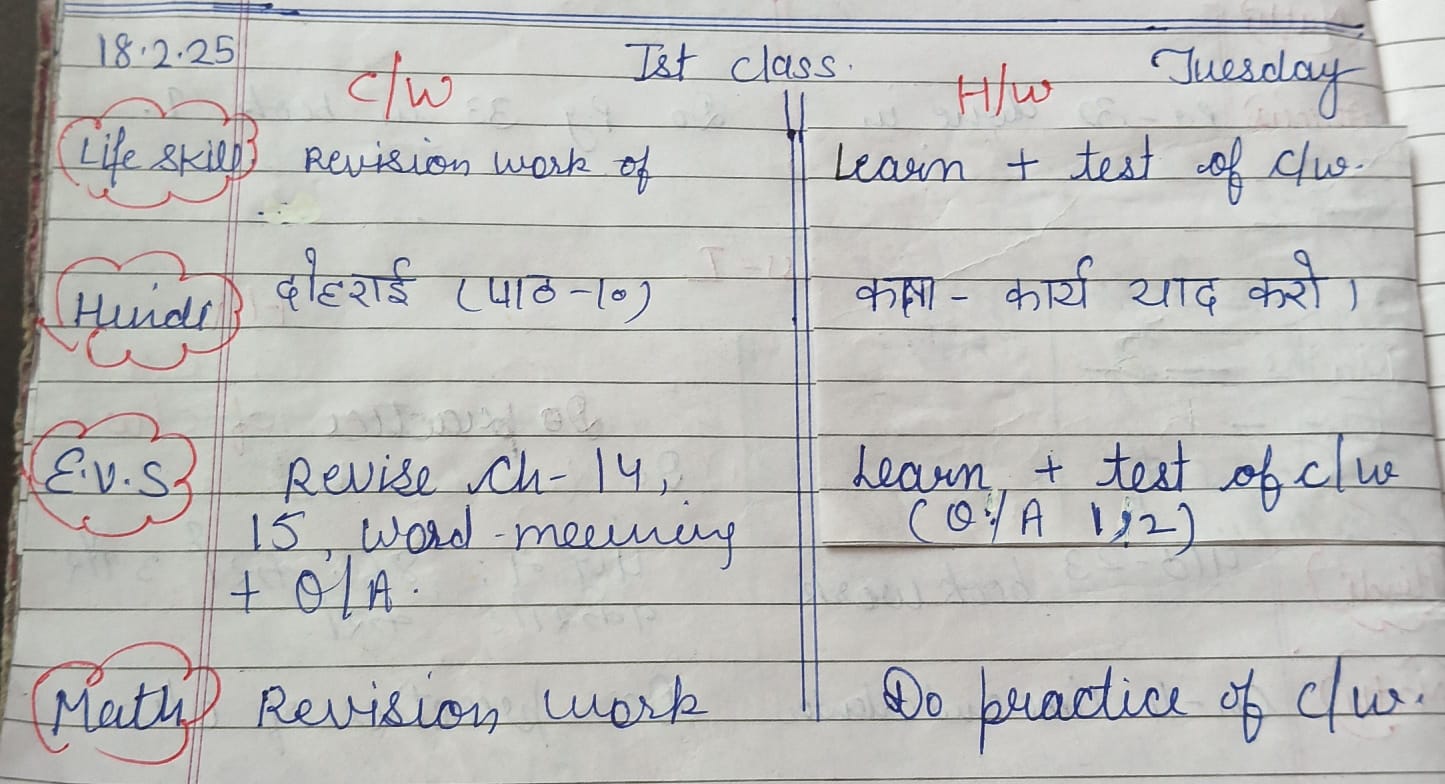 18.2.25 Ist class. Tuesday
C/W H/W
Life skill Revision work of Learn + test of c/w.
Hindi दोहराई (पाठ-१०) कक्षा - कार्य याद करो।
E.V.S Revise Ch-14, Learn + test of c/w
15, word-meening (Q/A 1,2)
+ Q/A.
Math Revision work Do practice of c/w.